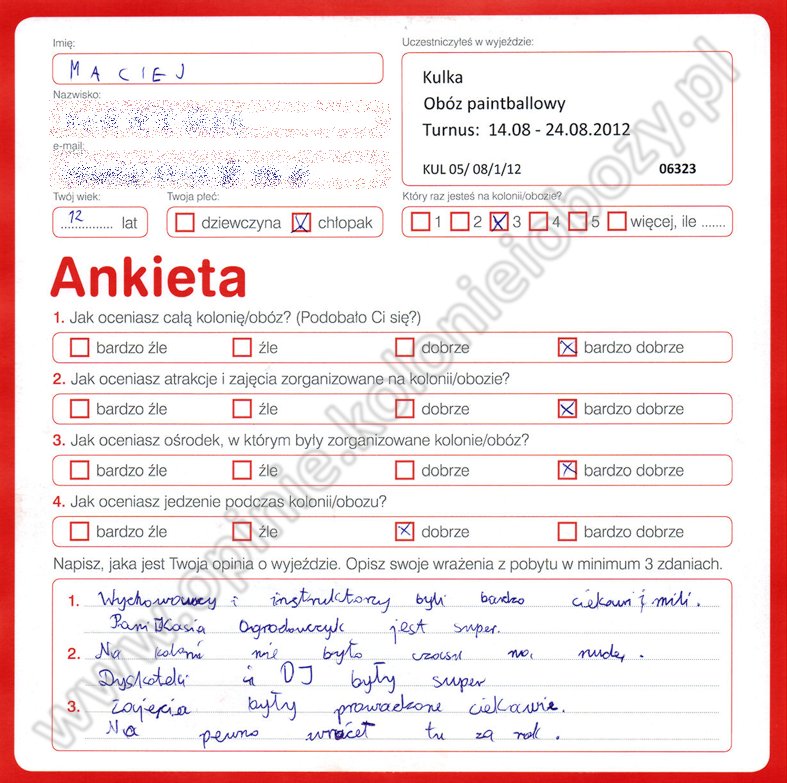 Imię:
MACIEJ
Nazwisko:
e-mail:
Twój wiek:
12 lat
Twoja płeć:
dziewczyna chłopak
Uczestniczyłeś w wyjeździe:
Kulka
Obóz paintballowy
Turnus: 14.08 - 24.08.2012
KUL 05/ 08/1/12 06323
Który raz jesteś na kolonii/obozie?
1 2 3 4 5 więcej, ile .......
Ankieta
1. Jak oceniasz całą kolonię/obóz? (Podobało Ci się?)
bardzo źle źle dobrze bardzo dobrze
2. Jak oceniasz atrakcje i zajęcia zorganizowane na kolonii/obozie?
bardzo źle źle dobrze bardzo dobrze
3. Jak oceniasz ośrodek, w którym były zorganizowane kolonie/obóz?
bardzo źle źle dobrze bardzo dobrze
4. Jak oceniasz jedzenie podczas kolonii/obozu?
bardzo źle źle dobrze bardzo dobrze
Napisz, jaka jest Twoja opinia o wyjeździe. Opisz swoje wrażenia z pobytu w minimum 3 zdaniach.
1. Wychowawcy i instruktorzy byli bardzo ciekawi i mili.
Pani Kasia Ogrodowczyk jest super.
2. Na koloni nie było czasu na nudę.
Dyskoteki i DJ były super
3. Zajęcia były prowadzone ciekawie.
Na pewno wrócę tu za rok.
www.opinie.kolonieiobozy.pl